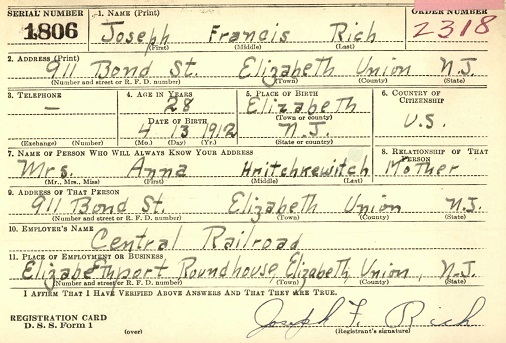 SERIAL NUMBER 1. NAME (Print) ORDER NUMBER
1806 Joseph Francis Rich 2318
(First) (Middle) (Last)
2. ADDRESS (Print)
911 Bond St. Elizabeth Union N.J.
(Number and street or R. F. D. number) (Town) (County) (State)
3. TELEPHONE 4. AGE IN YEARS 5. PLACE OF BIRTH 6. COUNTRY OF CITIZENSHIP
— 28 Elizabeth
(Town or county)
DATE OF BIRTH
4 13 1912 N.J. U.S.
(Exchange) (Number) (Mo.) (Day) (Yr.) (State or country)
7. NAME OF PERSON WHO WILL ALWAYS KNOW YOUR ADDRESS 8. RELATIONSHIP OF THAT PERSON
Mrs. Anna Hritchkewitch Mother
(Mr., Mrs., Miss) (First) (Middle) (Last)
9. ADDRESS OF THAT PERSON
911 Bond St. Elizabeth Union N.J.
(Number and street or R. F. D. number) (Town) (County) (State)
10. EMPLOYER'S NAME
Central Railroad
11. PLACE OF EMPLOYMENT OR BUSINESS
Elizabethport Roundhouse, Elizabeth, Union, N.J.
(Number and street or R. F. D. number) (Town) (County) (State)
I AFFIRM THAT I HAVE VERIFIED ABOVE ANSWERS AND THAT THEY ARE TRUE.
REGISTRATION CARD
D. S. S. Form 1 (over) Joseph F. Rich
(Registrant's signature)